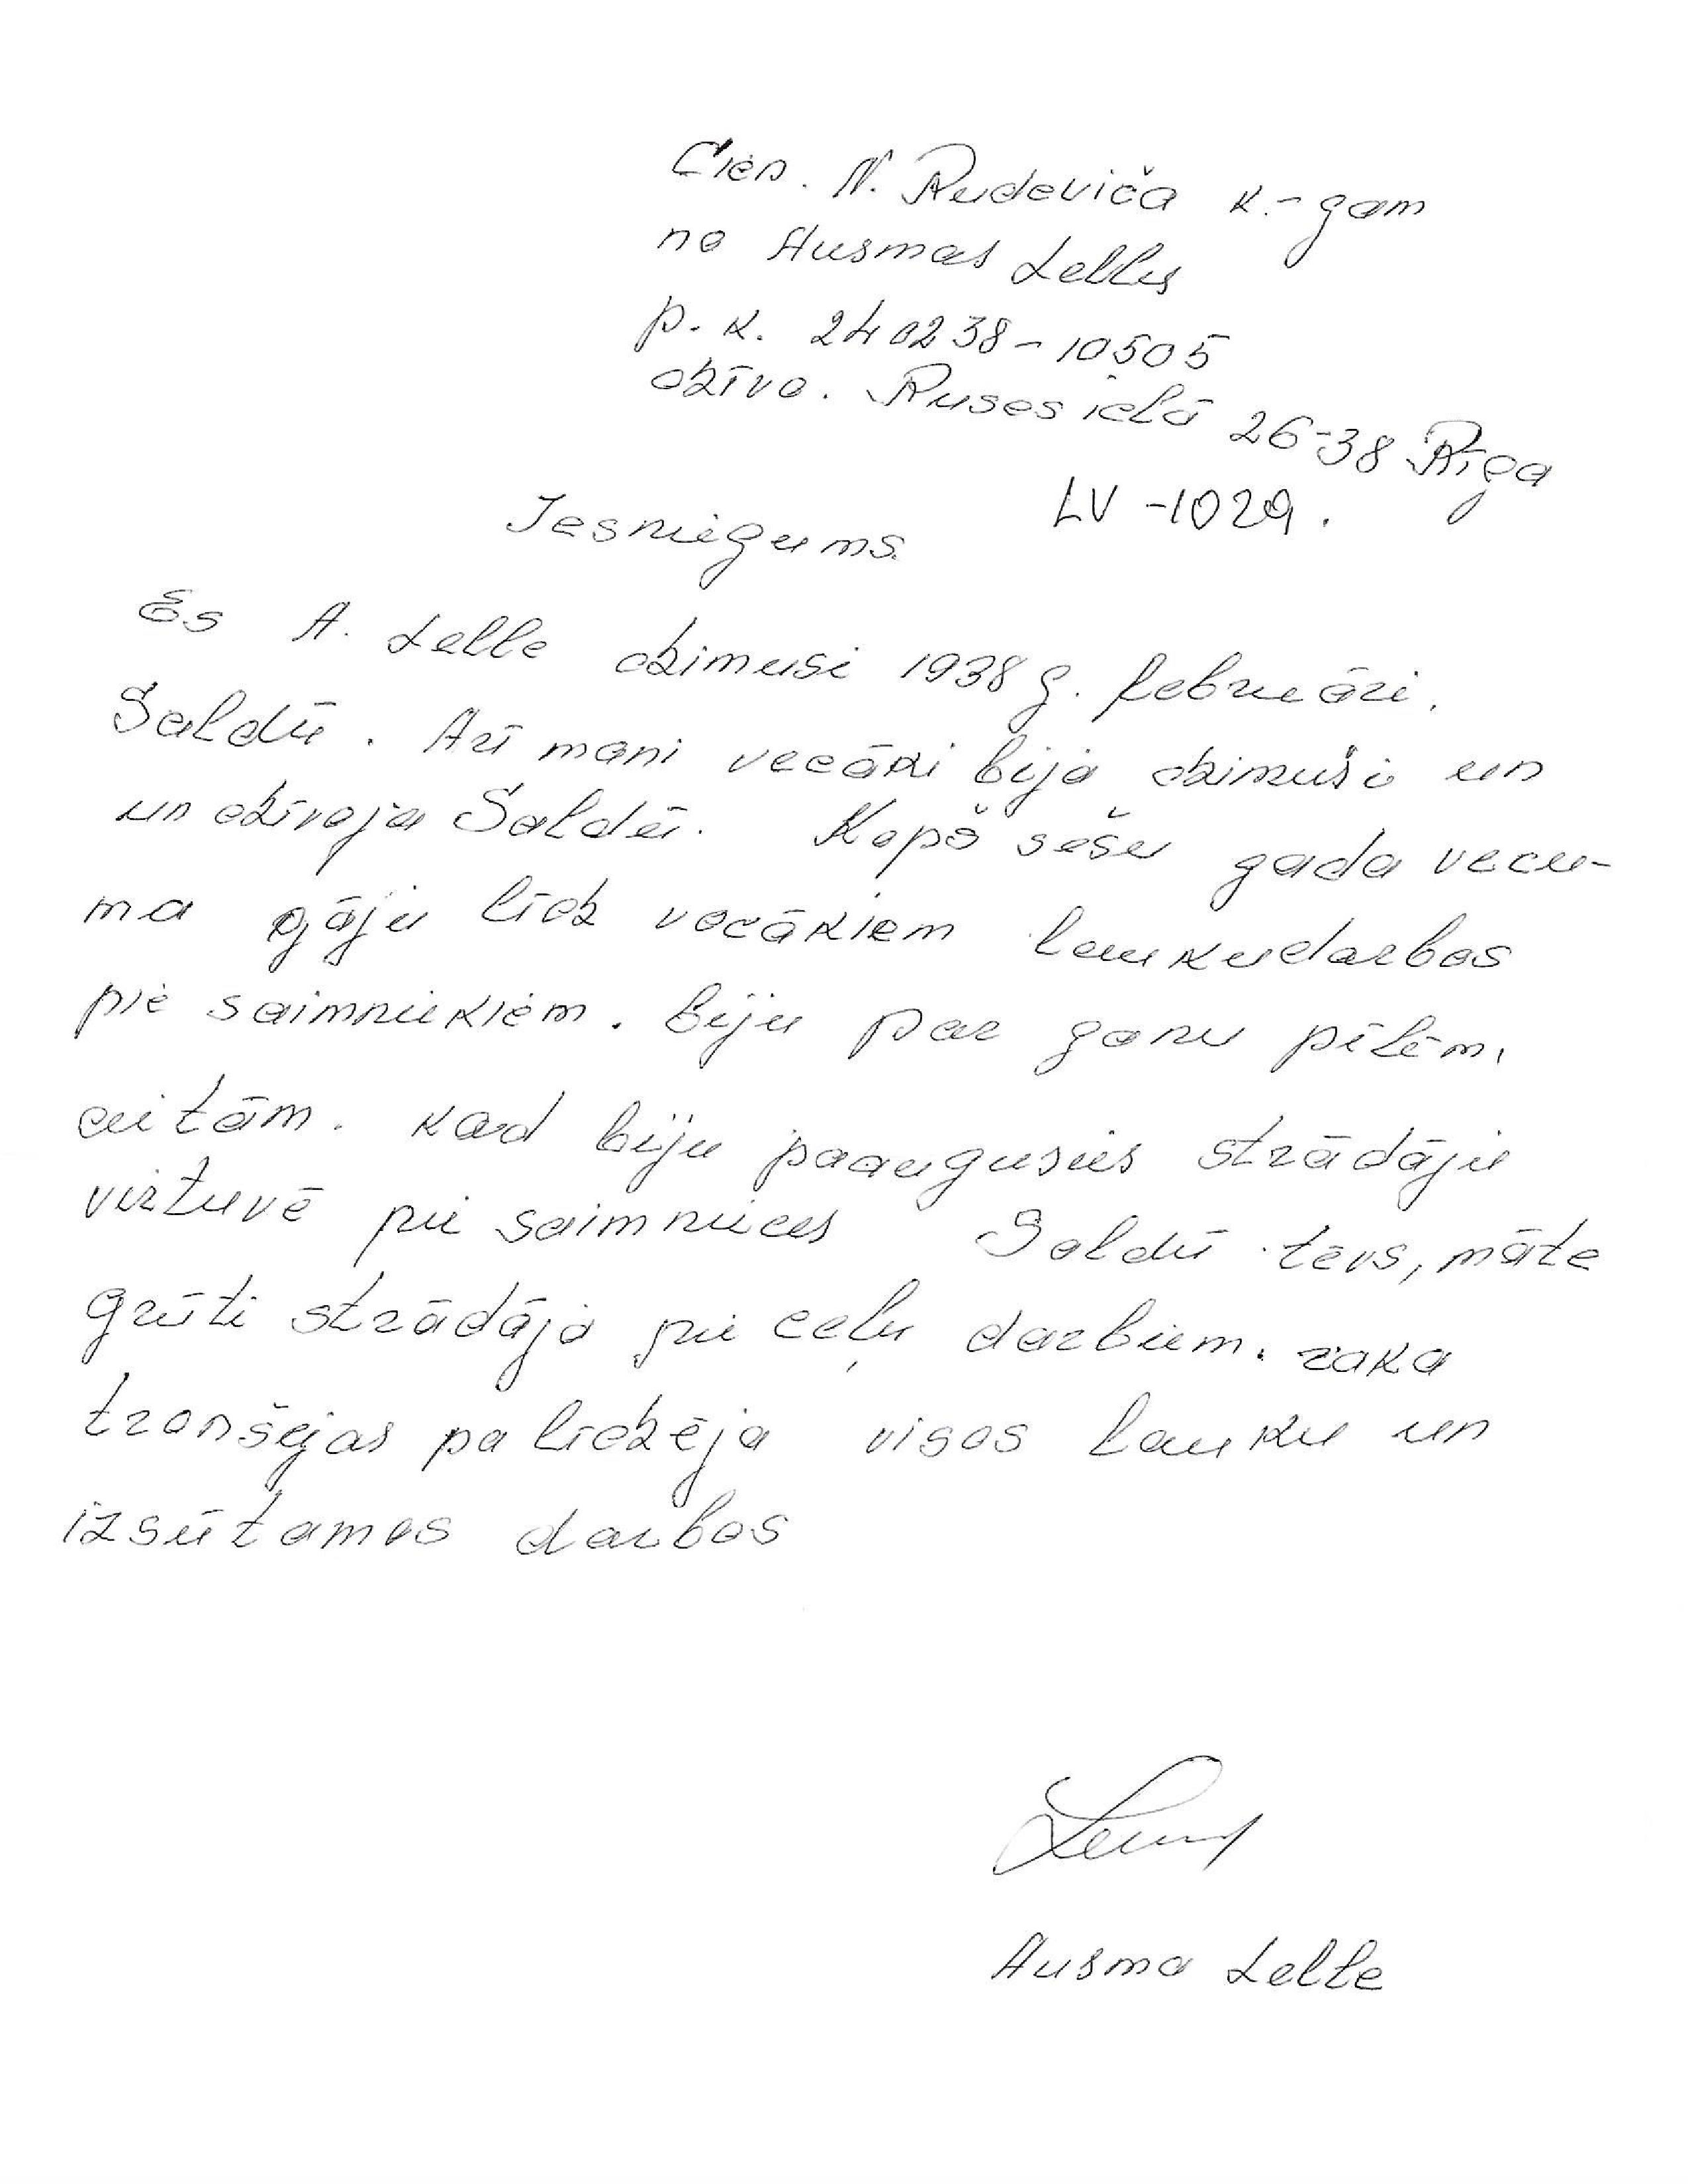 Cien. N. Rudeviča k.-gam
no Ausmas Lelles
p. k. 240238-10505
dzīvo. Ruses ielā 26-38 Rīga
LV -1029.
Iesniegums.
Es A. Lelle dzimusi 1938 g. februāri.
Saldū. Arī mani vecāki bija dzimuši un
un dzīvoja Saldū. Kopš sešu gada vecu-
ma gāju līdz vecākiem lauku darbos
pie saimniekiem. biju par ganu pīlēm,
aitām. kad biju paaugusies strādāju
virtuvē pie saimnieces Saldū tēvs, māte
grūti strādāja pie ceļu darbiem. raka
tranšejas palīdzēja visos lauku un
izsūtamos darbos
Ausma Lelle